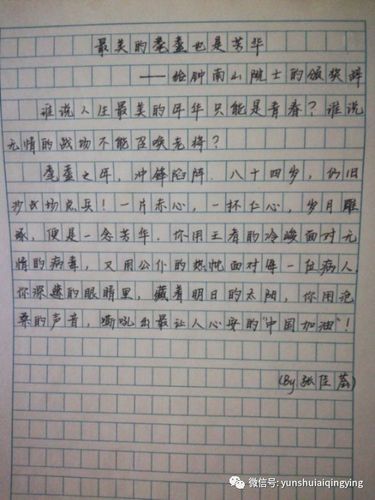 最美的耄耋也是芳华
——给钟南山院士的颁奖辞
谁说人生最美的年华只能是青春？谁说
无情的战场不能召唤老将？
耄耋之年，冲锋陷阵。八十四岁，仍旧
沙战场点兵！一片赤心，一杯仁心，岁月雕
琢，便是一念芳华。你用王者的冷峻面对无
情的病毒，又用公仆的热忱面对每一位病人。
你深邃的眼睛里，藏着明日的太阳，你用沧
桑的声音，嘶吼出最让人心安的“中国加油”！
(By 张佳
微信号: yunshuaiqingying